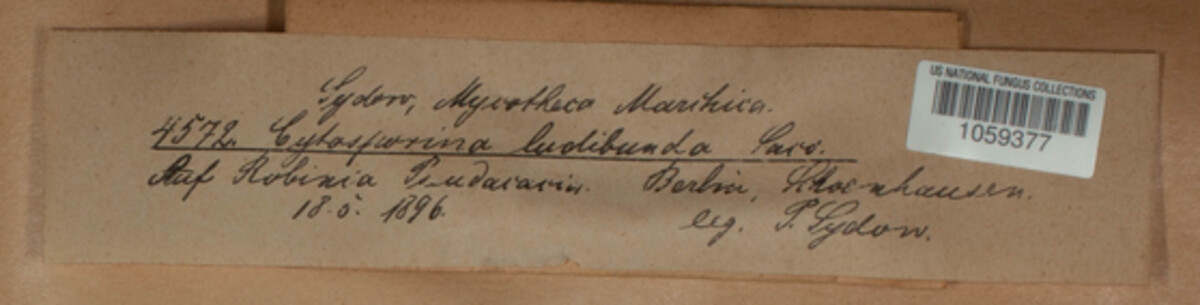 Sydow, Mycotheca Marchica.
4572. Cytosporina ludibunda Sacc.
Auf Robinia Pseudacacia. Berlin, Schoenhausen.
18.5. 1896.
leg. P. Sydow.
US NATIONAL FUNGUS COLLECTIONS
1059377